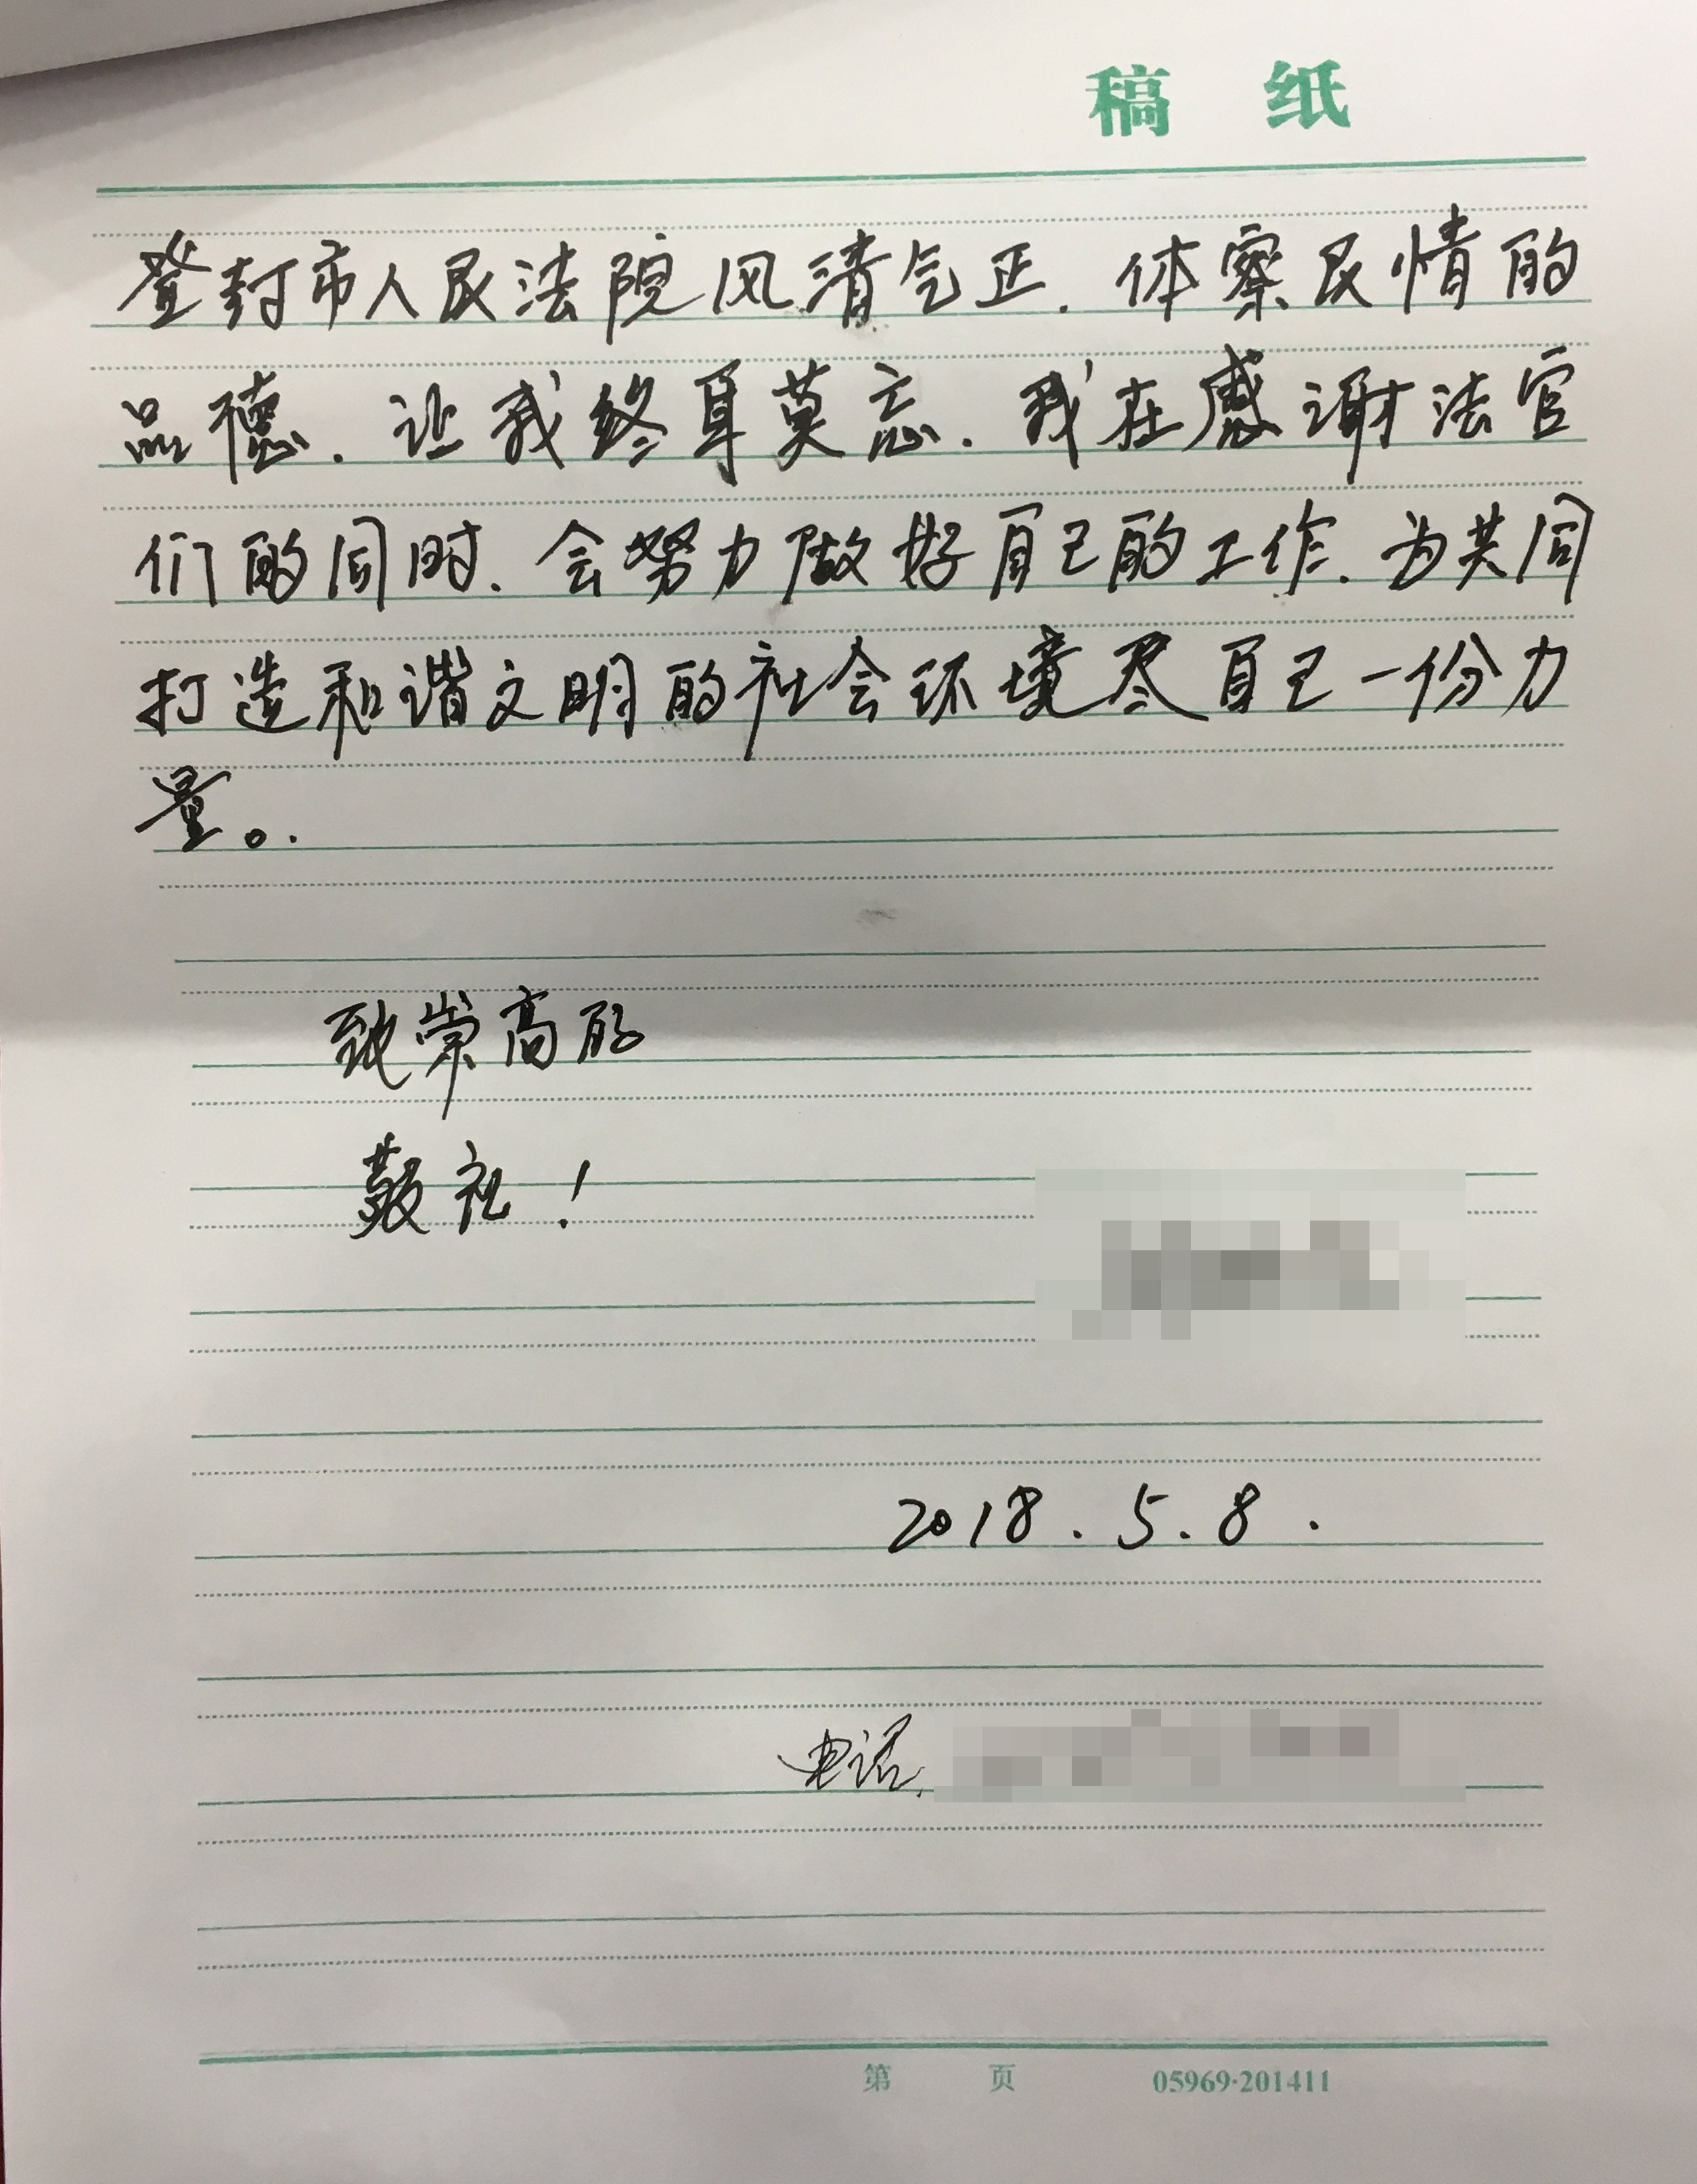 稿 纸
登封市人民法院风清气正.体察民情的
品德.让我终身莫忘.我在感谢法官
们的同时.会努力做好自己的工作.为共同
打造和谐文明的社会环境尽自己一份力
量。.
致崇高的
敬礼!
2018.5.8.
电话.
第 页 05969·201411